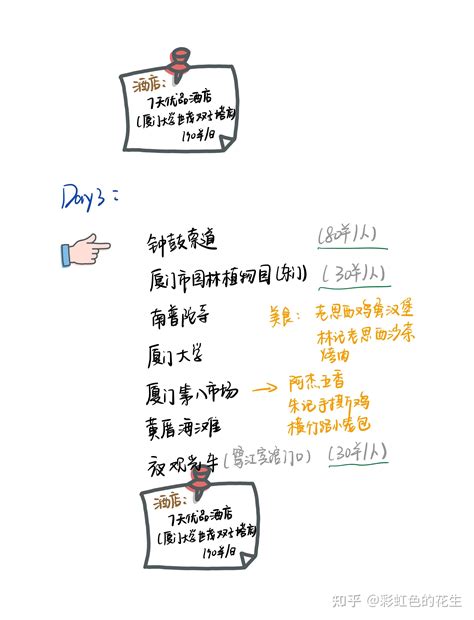 酒店：
7天优品酒店
(厦门大学世茂双子塔店)
190羊/日
Day3：
钟鼓索道 (80羊/人)
厦门市园林植物园(东门) (30羊/人)
南普陀寺 美食：老思西鸡蛋汉堡
林记老思西沙茶
烤肉
厦门大学
厦门第八市场 → 阿杰五香
朱记手撕鸡
横竹路小笼包
黄厝海滩
夜观光车(鹭江宾馆门口) (30羊/人)
酒店：
7天优品酒店
(厦门大学世茂双子塔店)
190羊/日
知乎 @彩虹色的花生